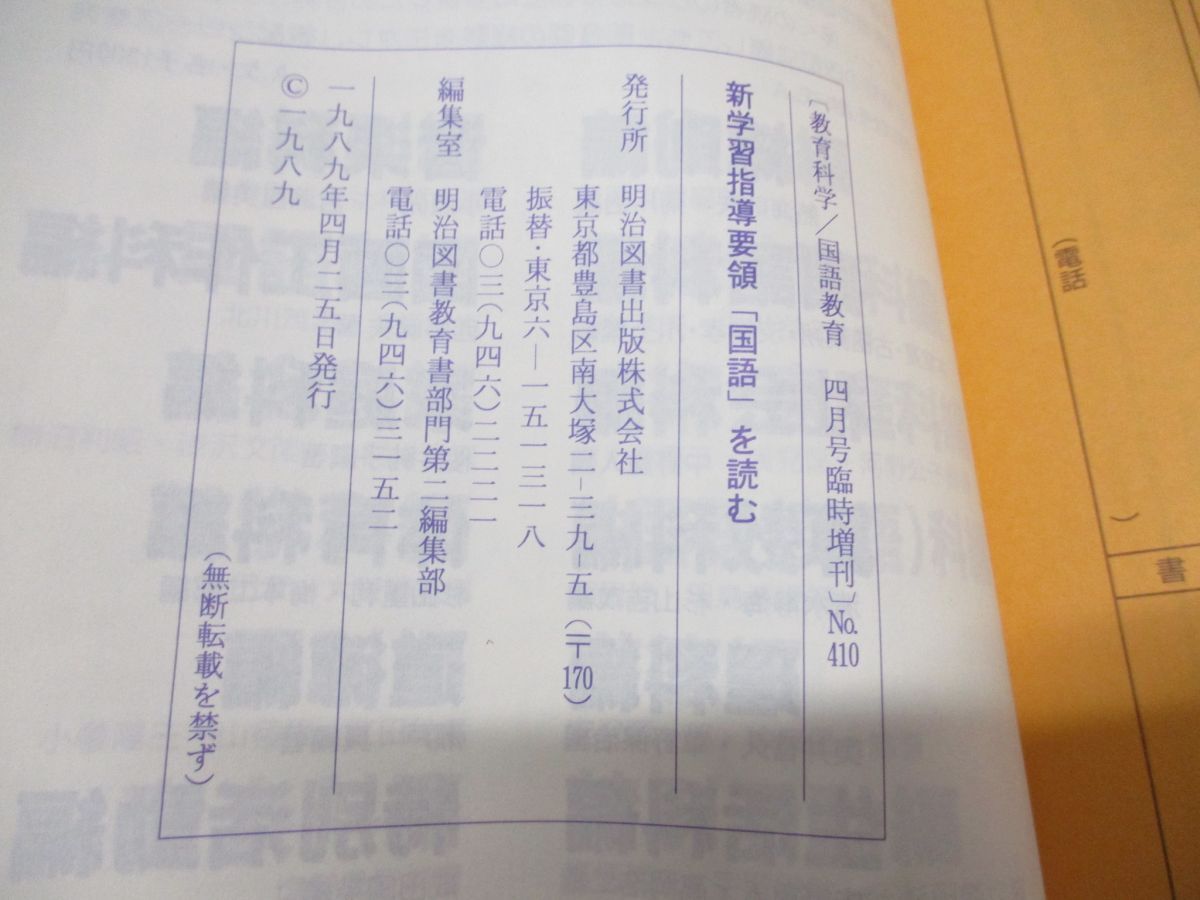 〔教育科学／国語教育　四月号臨時増刊〕No.410
新学習指導要領「国語」を読む
発行所　明治図書出版株式会社
東京都豊島区南大塚二－三九－五（〒170）
振替・東京六―一五一三一八
電話〇三（九四六）二二二一
編集室　明治図書教育書部門第二編集部
電話〇三（九四六）三一五二
一九八九年四月二五日発行
©一九八九
（無断転載を禁ず）
（電話
）
書